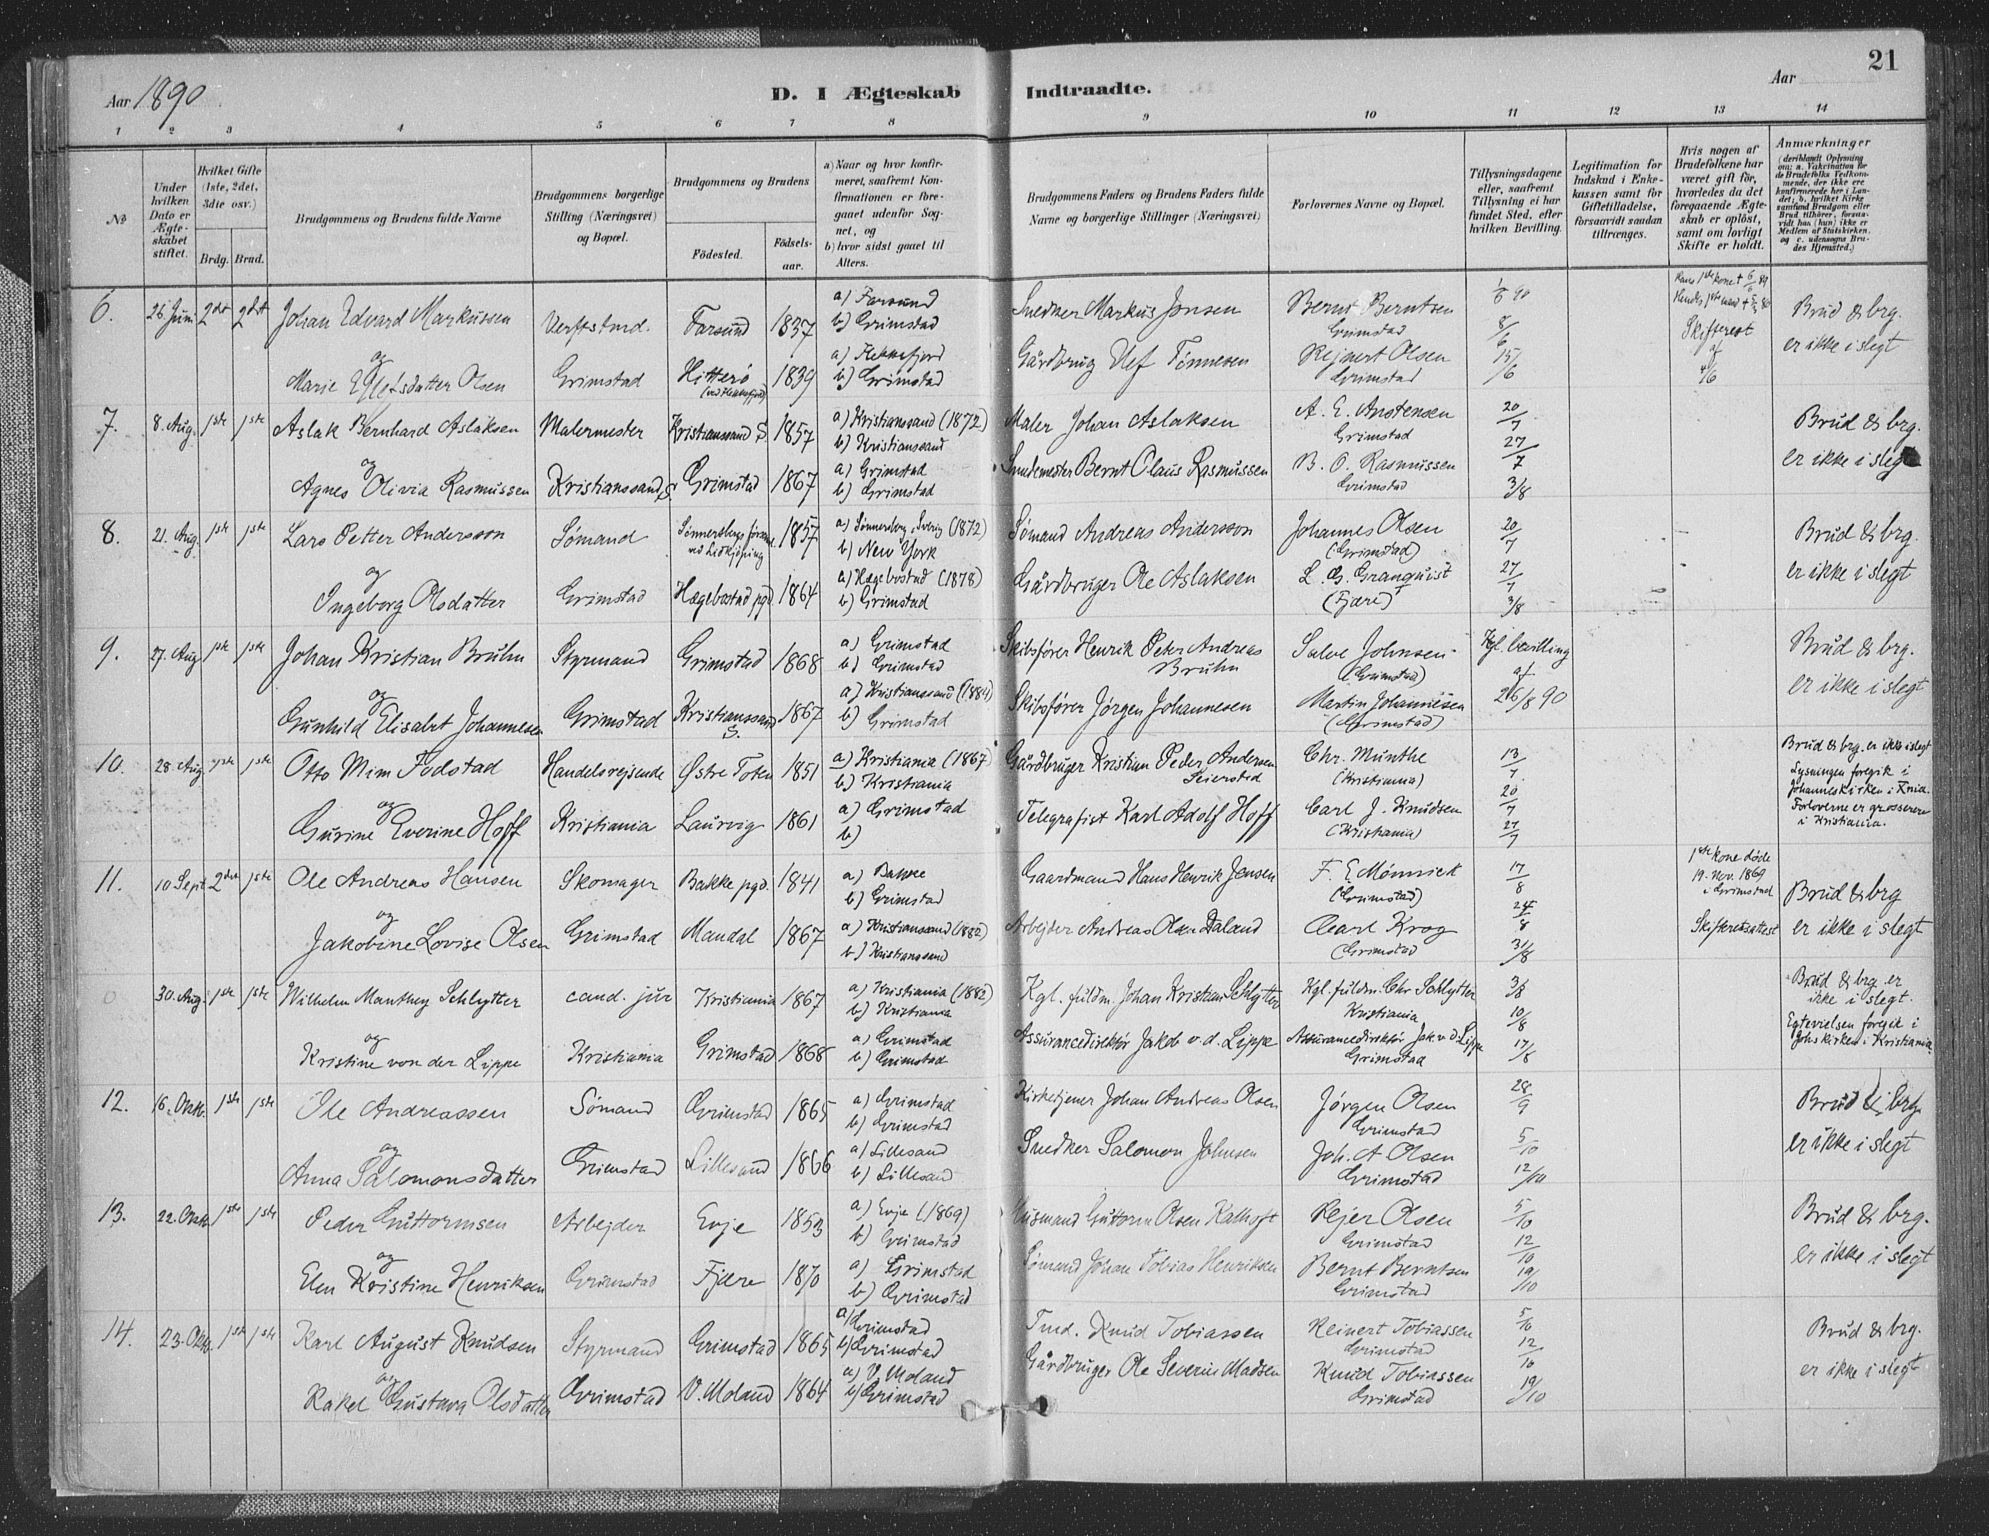 Aar 1890
D. I Ægteskab Indtraadte.
Aar
21
1 2 3 4 5 6 7 8 9 10 11 12 13 14
No
Under hvilken Dato er Ægteskabet stiftet.
Hvilket Gifte (1ste, 2det, 3dte osv.)
Brdg. Brud.
Brudgommens og Brudens fulde Navne
Brudgommens borgerlige Stilling (Næringsvei) og Bopæl.
Brudgommens og Brudens
Fødested.
Fødselsaar.
a) Naar og hvor konfirmeret, saafremt Konfirmationen er foregaaet udenfor Sognet, og
b) hvor sidst gaaet til Alters.
Brudgommens Faders og Brudens Faders fulde Navne og borgerlige Stillinger (Næringsvei)
Forlovernes Navne og Bopæl.
Tillysningsdagene eller, saafremt Tillysning ei har fundet Sted, efter hvilken Bevilling.
Legitimation for Indskud i Enkekassen samt for Giftetilladelse, forsaavidt saadan tiltrænges.
Hvis nogen af Brudefolkene har været gift før, hvorledes da det foregaaende Ægteskab er opløst, samt om lovligt Skifte er holdt.
Anmærkninger
(deriblandt Oplysning om: a. Vakcination for de Brudefolks Vedkommende, der ikke ere konfirmerede her i Landet; b. hvilket Kirkesamfund Brudgom eller Brud tilhører, forsaavidt han (hun) ikke er Medlem af Statskirken, og c. udensogns Brudes Hjemsted.)
6. 26 Juni 2det 2det Johan Edvard Markussen Verftstmd. Farsund 1837 a) Farsund b) Grimstad Snedker Markus Jonsen Bernt Berntsen Grimstad 1/6 90 8/6 Hans 1ste kone + 6/6 89 Hendes 1ste mand + Brud & brg.
og Marie Olsen Grimstad Hitterø 1839 a) Flekkefjord b) Grimstad Gårdbrug Tønnesen Rejnert Olsen Grimstad 15/6 Skifteret af 4/6 er ikke i slegt
7. 8. Aug. 1ste 1ste Aslak Bernhard Aslaksen Malermester Kristianssand S. 1857 a) Kristianssand (1872) b) Kristianssand Maler Johan Aslaksen A. E. Anstensen Grimstad 20/7 27/7 Brud & brg.
og Agnes Olivia Rasmussen Kristianssand S. Grimstad 1867 a) Grimstad b) Grimstad Bernt Claus Rasmussen B. C. Rasmussen Grimstad 3/8 er ikke i slegt
8. 21. Aug. 1ste 1ste Lars Petter Andersson Sømand Sönnersbergs ved Lidkjöping 1857 a) Sönnersberg, Sverig (1872) b) New York Sømand Andreas Andersson Johannes Olsen (Grimstad) 20/7 Brud & brg.
og Ingeborg Olsdatter Grimstad Hægebostad pgd 1864 a) Hægebostad (1878) b) Grimstad Gårdbruger Ole Aslaksen L. G. Granqvist (Fjære) 27/7 3/8 er ikke i slegt
9. 27. Aug 1ste 1ste Johan Kristian Bruhn Styrmand Grimstad 1868 a) Grimstad b) Grimstad Skibsfører Henrik Peter Andreas Bruhn Salve Johnsen (Grimstad) Kgl. bevilling Brud & brg.
og Gunhild Elisabet Johannesen Grimstad Kristianssand S. 1867 a) Kristianssand (1884) b) Grimstad Skibsfører Jørgen Johannesen Martin Johannesen (Grimstad) af 26/8 90 er ikke i slegt
10. 28. Aug 1ste 1ste Otto Mim Fodstad Handelsrejsende Østre Toten 1851 a) Kristiania (1867) b) Kristiania Gårdbruger Kristian Peder Andersen Seierstad Chr. Munthe (Kristiania) 13/7 20/7 Brud & brg. er ikke i slegt Lysningen foregik i Johanneskirken i Xnia.
og Gurine Everine Hoff Kristiania Laurvig 1861 a) Grimstad b) Telegrafist Karl Adolf Hoff Carl J. Knudsen (Kristiania) 27/7 Forloverne er grosserere i Kristiania.
11. 10 Sept 2det 1ste Ole Andreas Hansen Skomager Bakke pgd. 1841 a) Bakke b) Grimstad Gaardmand Hans Henrik Jensen F. E. Mönnick (Grimstad) 17/8 24/8 1ste kone døde 19. Nov. 1869 i Grimstad Brud & brg
og Jakobine Lovise Olsen Grimstad Mandal 1867 a) Kristianssand (1882) b) Kristianssand Arbejder Andreas Olsen Daland Carl Krog (Grimstad 31/8 Skifteretsattest er ikke i slegt
0 30. Aug. 1ste 1ste Wilhelm Manthey Schlytter cand. jur Kristiania 1867 a) Kristiania (1882) b) Kristiania Kgl. fuldm. Johan Kristian Schlytter Kgl. fuldm. Chr Schlytter Kristiania 3/8 10/8 Brud & brg er ikke i slegt.
og Kristine von der Lippe Kristiania Grimstad 1868 a) Grimstad b) Grimstad Assurancedirektör Jakob v. d. Lippe Assurancedirektör Jak v. d. Lippe Grimstad 17/8 Egtevielsen foregik i Johs kirken i Kristiania
12. 16. Okt. 1ste 1ste Ole Andreassen Sömand Grimstad 1865 a) Grimstad b) Grimstad Kirketjener Johan Andreas Olsen Jörgen Olsen Grimstad 28/9 Brud & brg.
og Anna Salomonsdatter Grimstad Lillesand 1866 a) Lillesand b) Lillesand Snedker Salomon Johnsen Joh. A. Olsen Grimstad 5/10 12/10 er ikke i slegt
13. 22. Okt. 1ste 1ste Peder Guttormsen Arbejder Evje 1853 a) Evje (1869) b) Grimstad Husmand Guttorm Olsen Kathoft Rejer Olsen Grimstad 5/10 12/10 Brud & brg.
og Elen Kristine Henriksen Grimstad Fjære 1870 a) Grimstad b) Grimstad Sömand Johan Tobias Henriksen Bernt Berntsen Grimstad 19/10 er ikke i slegt
14. 23. Okt. 1ste 1ste Karl August Knudsen Styrmand Grimstad 1865 a) Grimstad b) Grimstad Tmd. Knud Tobiassen Reinert Tobiassen Grimstad 5/10 12/10 Brud & brg.
og Rakel Gustava Olsdatter Grimstad V. Moland 1864 a) V. Moland b) Grimstad Gårdbruger Ole Severin Madsen Knud Tobiassen Grimstad 19/10 er ikke i slegt